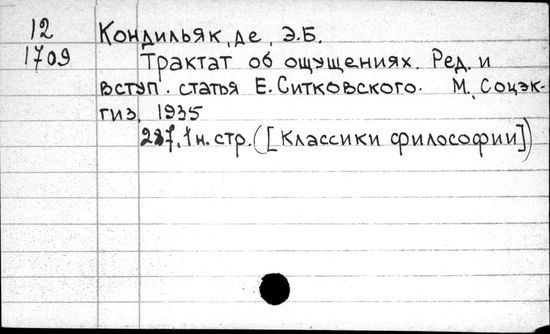 12
1709
Кондильяк, де, Э.Б.
Трактат об ощущениях. Ред. и
вступ. статья Е. Ситковского. М., Соцэк-
гиз, 1935
287, 1 н. стр. ([Классики философии])